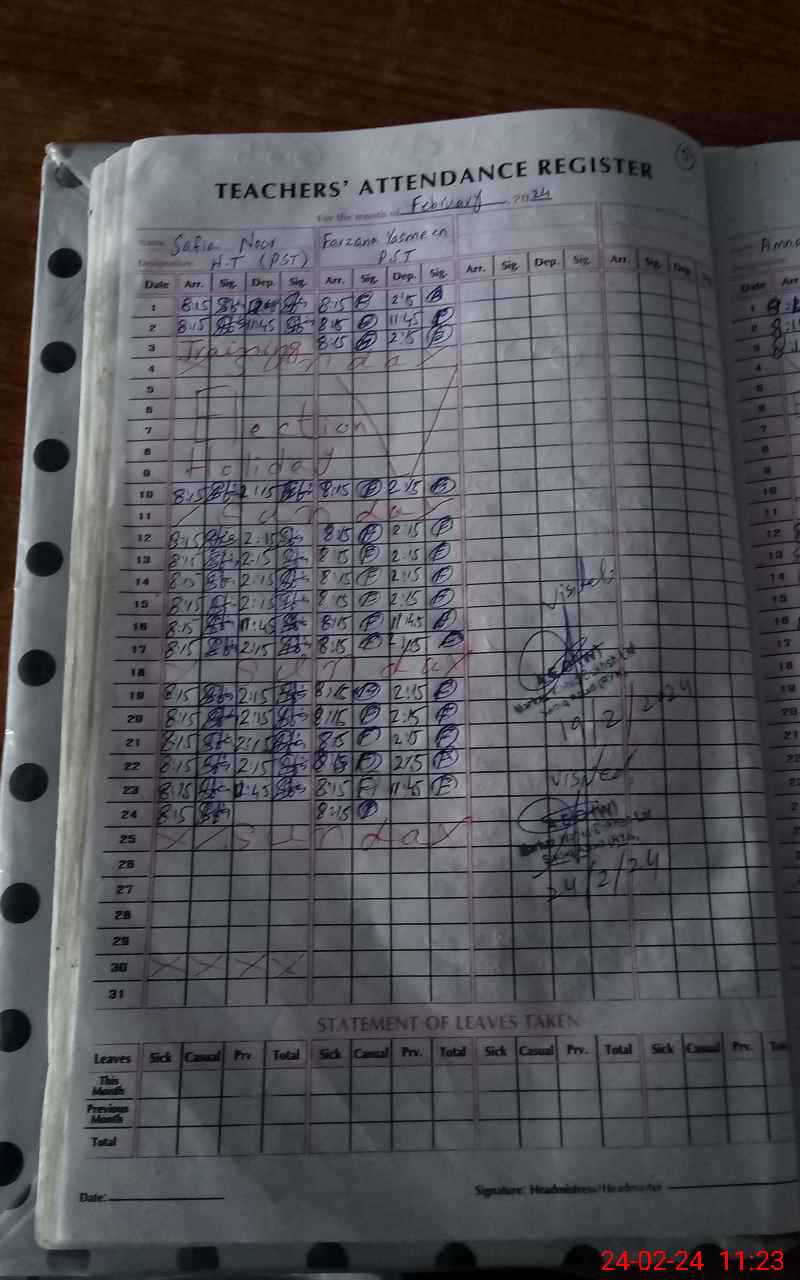 TEACHERS' ATTENDANCE REGISTER
For the month of February 2024
Name Safia Noor Farzana Yasmeen
Designation H.T (PST) PST
Date Arr. Sig. Dep. Sig. Arr. Sig. Dep. Sig. Arr. Sig. Dep. Sig. Arr. Sig. Dep
1 8:15 8:15 2:15
2 8:15 11:45 8:15 11:45
3 Training 8:15 2:15
4 Sunday
5
6
7 Election
8
9 Holiday
10 8:15 2:15 8:15 2:15
11 Sunday
12 8:15 2:15 8:15 2:15
13 8:15 2:15 8:15 2:15
14 8:15 2:15 8:15 2:15
15 8:15 2:15 8:15 2:15
16 8:15 11:45 8:15 11:45
17 8:15 2:15 8:15 2:15
18 Sunday
19 8:15 2:15 8:15 2:15
20 8:15 2:15 8:15 2:15
21 8:15 2:15 8:15 2:15
22 8:15 2:15 8:15 2:15
23 8:15 11:45 8:15 11:45
24 8:15 8:15
25 Sunday
26
27
28
29
30
31
visited
19/2/2024
visited
24/2/24
STATEMENT OF LEAVES TAKEN
Leaves Sick Casual Prv. Total Sick Casual Prv. Total Sick Casual Prv. Total Sick Casual Prv.
This Month
Previous Month
Total
Date:
Signature: Headmistress/Headmaster
24-02-24 11:23